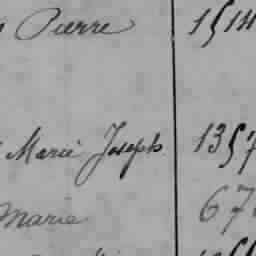 Pierre 1514
Marie Joseph 1357
Marie 67